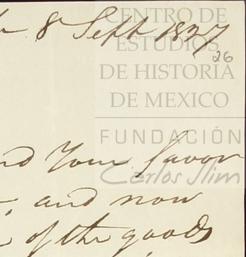 8 Sept 1827
26
CENTRO DE
ESTUDIOS
DE HISTORIA
DE MEXICO
FUNDACIÓN
Carlos Slim
Your favor
and now
of the goods